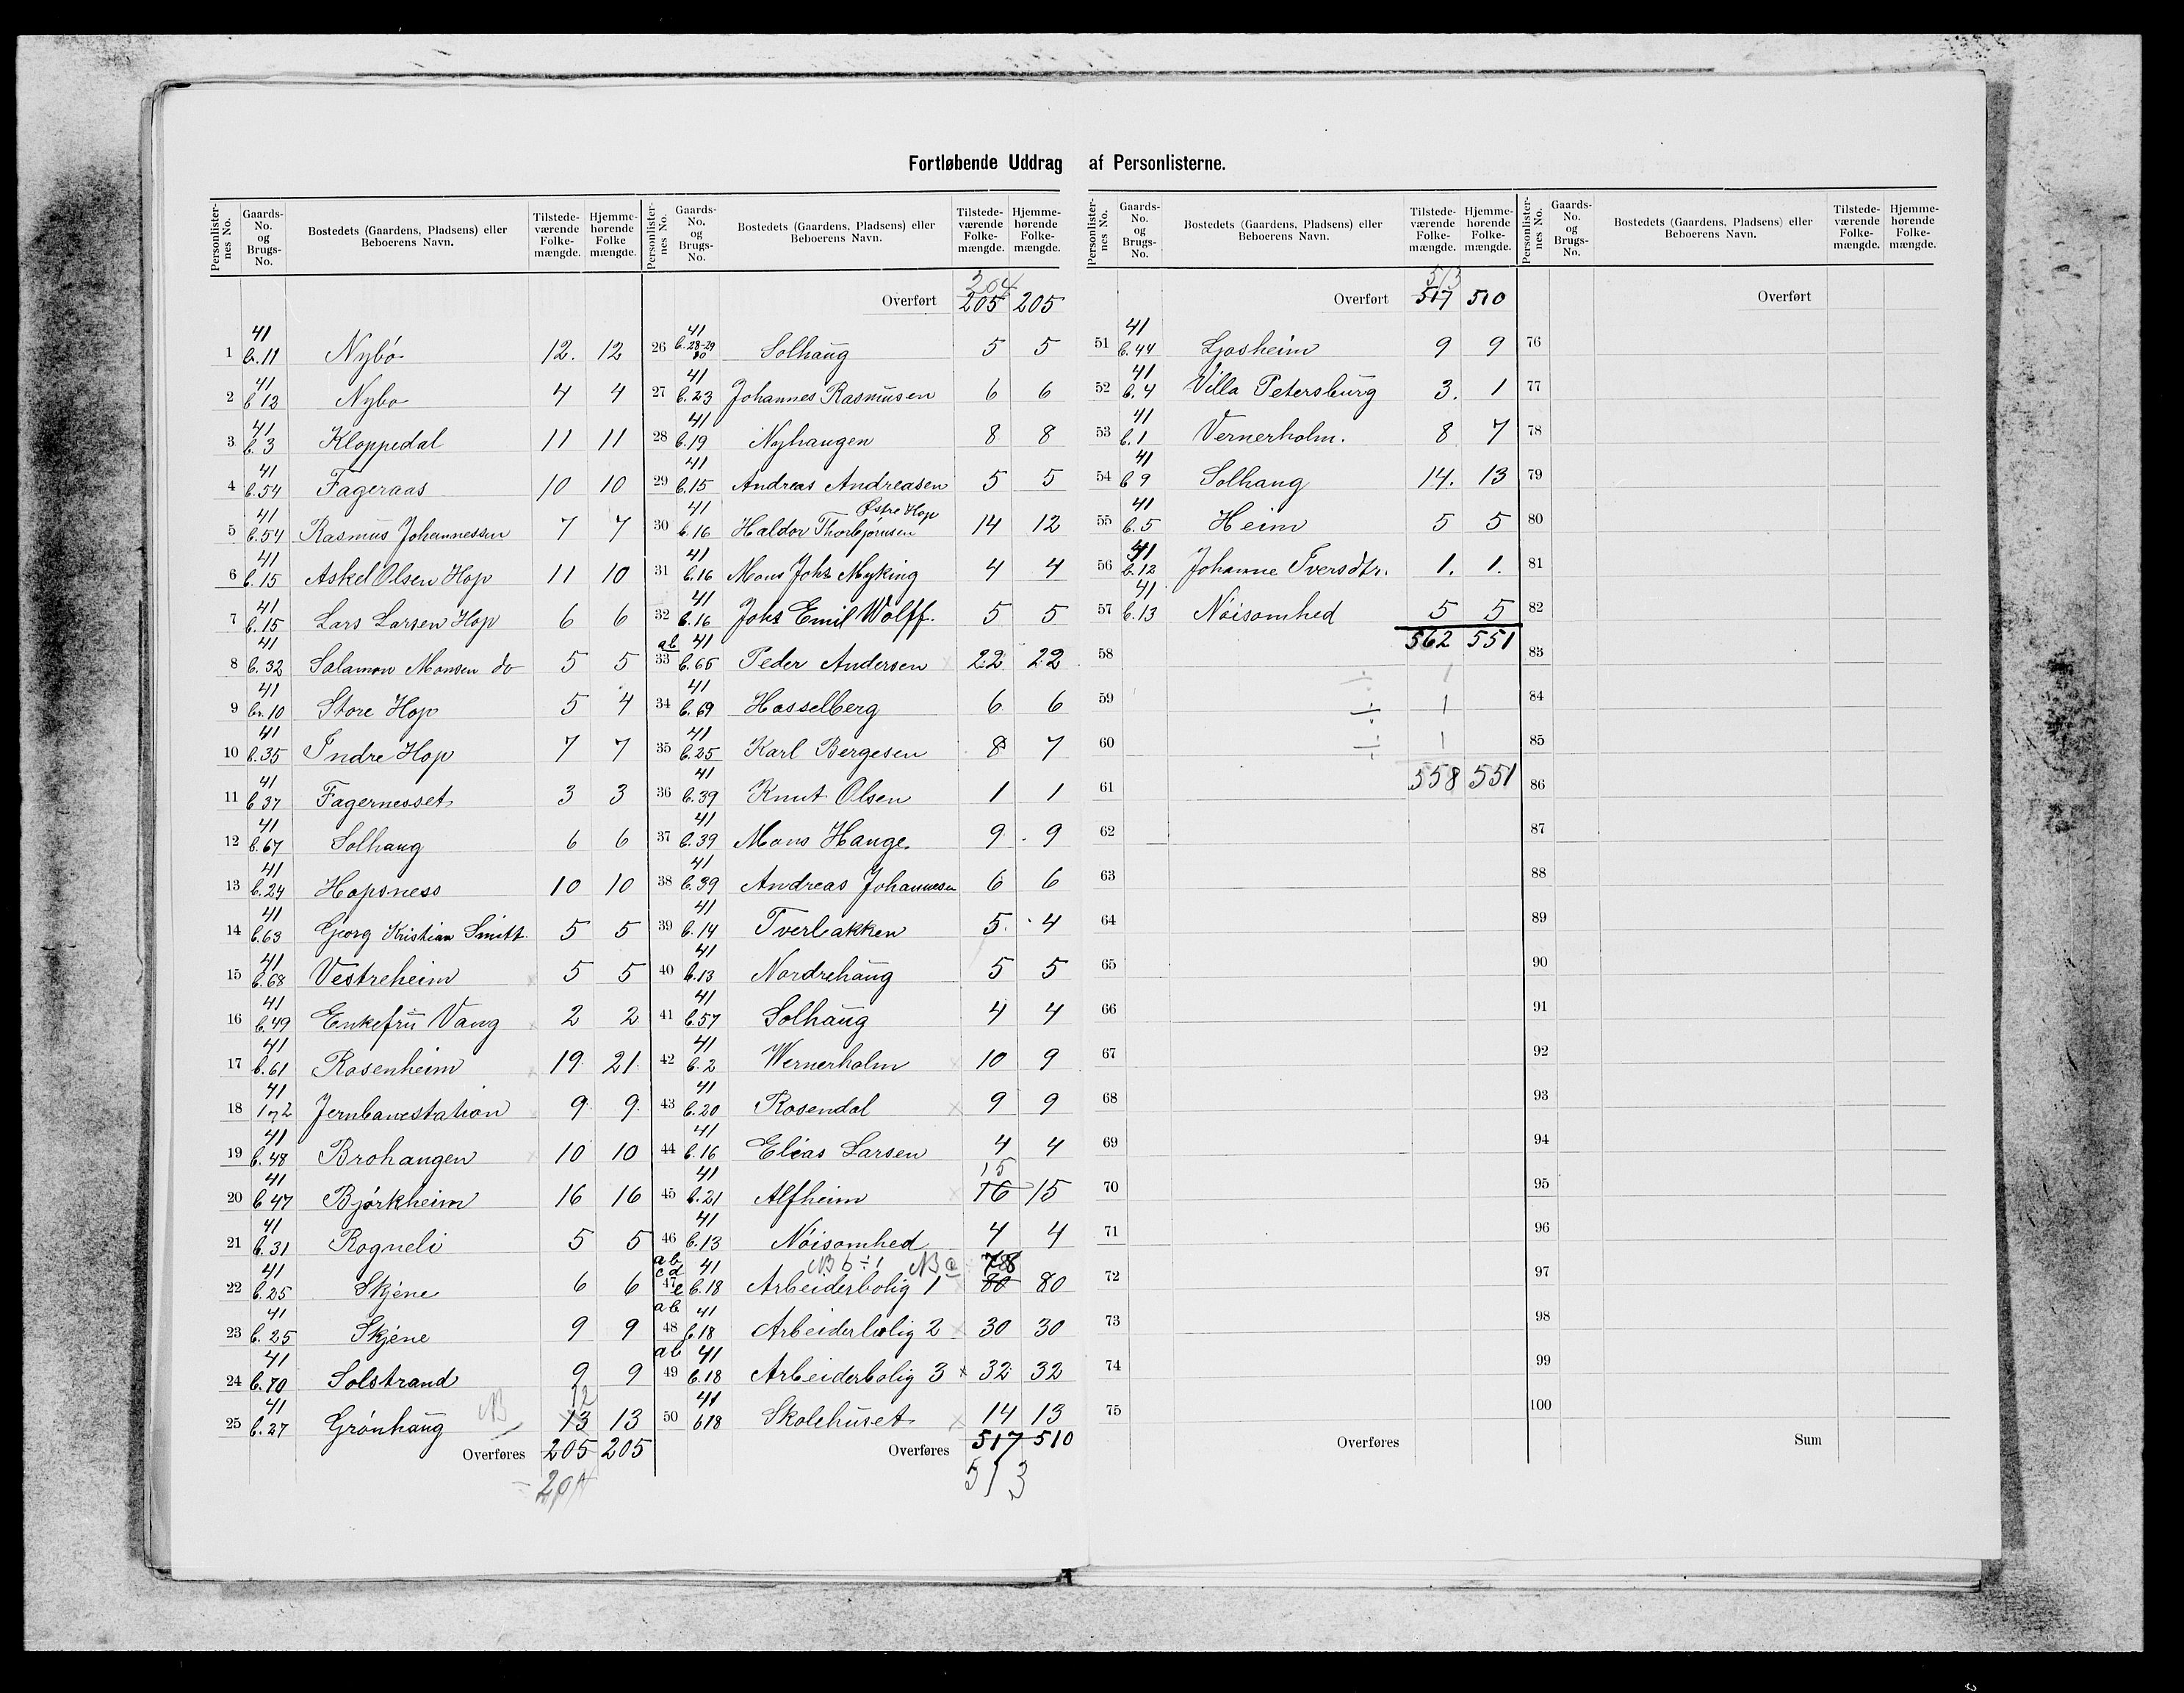 Fortløbende Uddrag af Personlisterne.
Personlister-nes No. Gaards-No. og Brugs-No. Bostedets (Gaardens, Pladsens) eller Beboerens Navn. Tilstede-værende Folke-mængde. Hjemme-hørende Folke mængde.
1 41 b. 11 Nybø 12. 12
2 41 b 12 Nybo 4 4
3 41 b. 3 Kloppedal 11 11
4 41 b. 54 Fageraas 10 10
5 41 b. 54 Rasmus Johannessen 7 7
6 41 b. 15 Askel Olsen Hop 11 10
7 41 b. 15 Lars Larsen Hop 6 6
8 41 b. 32 Salamon Monsen do 5 5
9 41 b. 10 Store Hop 5 4
10 41 b. 35 Indre Hop 7 7
11 41 b 37 Fagernesset 3 3
12 41 b. 67 Solhaug 6 6
13 41 b. 24 Hopsness 10 10
14 41 b. 63 Georg Kristian Smitt. 5 5
15 41 b. 68 Vestreheim 5 5
16 41 b. 49 Enkefru Vang 2 2
17 41 b. 61 Rosenheim 19 21
18 41 172 Jernbanestation 9 9
19 41 b. 48 Brohaugen 10 10
20 41 b 47 Bjørkheim 16 16
21 41 b. 31 Rogneli 5 5
22 41 b. 25 Skjene 6 6
23 41 b. 25 Skjene 9 9
24 41 b. 70 Solstrand 9 9
25 41 b. 27 Grønhaug NB 12 13 13
Overføres 205 205
= 204
Personlister-nes No. Gaards-No. og Brugs-No. Bostedets (Gaardens, Pladsens) eller Beboerens Navn. Tilstede-værende Folke-mængde. Hjemme-hørende Folke-mængde.
204
Overført 205 205
26 41 b. 28-29 80 Solhaug 5 5
27 41 b. 23 Johannes Rasmusen 6 6
28 41 b. 19 Nyhaugen 8 8
29 41 b. 15 Andreas Andreasen 5 5
30 41 b. 16 Haldor Thorbjørnsen Østre Hop 14 12
31 41 b. 16 Mons Johs Myking 4 4
32 41 b. 16 Johs Emil Wolff. 5 5
ab 33 41 b. 65 Peder Andersen 22 22
34 41 b. 69 Hasselberg 6 6
35 41 b. 25 Karl Bergesen 8 7
36 41 b. 39 Knut Olsen 1 1
37 41 b. 39 Mons Hauge. 9 9
38 41 b. 39 Andreas Johannesen 6 6
39 41 b. 14 Tverbakken 5. 4
40 41 b. 13 Nordrehaug 5 5
41 41 b. 57 Solhaug 4 4
42 41 b. 2 Wernerholm 10 9
43 41 b. 20 Rosendal x 9 9
44 41 b. 16 Elias Larsen 4 4
45 41 b. 21 Alfheim x 15 16 15
46 41 b. 13 Nøisomhed 4 4
ab cd e 47 41 b. 18 Arbeiderbolig 1 NB b ÷ 1 NB e 78 80 80
ab 48 41 b. 18 Arbeiderbolig 2 x 30 30
ab 49 41 b. 18 Arbeiderbolig 3 x 32 32
50 41 b 18 Skolehuset x 14 13
Overføres 517 510
513
Personlister-nes No. Gaards-No. og Brugs-No. Bostedets (Gaardens, Pladsens) eller Beboerens Navn. Tilstede-værende Folke-mængde. Hjemme-hørende Folke-mængde.
513
Overført 517 510
51 41 b. 44 Ljosheim 9 9
52 41 b. 4 Villa Petersburg 3. 1
53 41 b. 1 Vernerholm. 8 7
54 41 b 9 Solhaug 14. 13
55 41 b. 5 Heim 5 5
56 41 b. 12 Johanne Iversdtr. 1. 1.
57 41 b. 13 Nøisomhed 5 5
562 551
58 ÷ 1
59 ÷ 1
60 ÷ 1
61 558 551
62
63
64
65
66
67
68
69
70
71
72
73
74
75
Overføres
Personlister-nes No. Gaards-No. og Brugs-No. Bostedets (Gaardens, Pladsens) eller Beboerens Navn. Tilstede-værende Folke-mængde. Hjemme-hørende Folke-mængde.
Overført
76
77
78
79
80
81
82
83
84
85
86
87
88
89
90
91
92
93
94
95
96
97
98
99
100
Sum